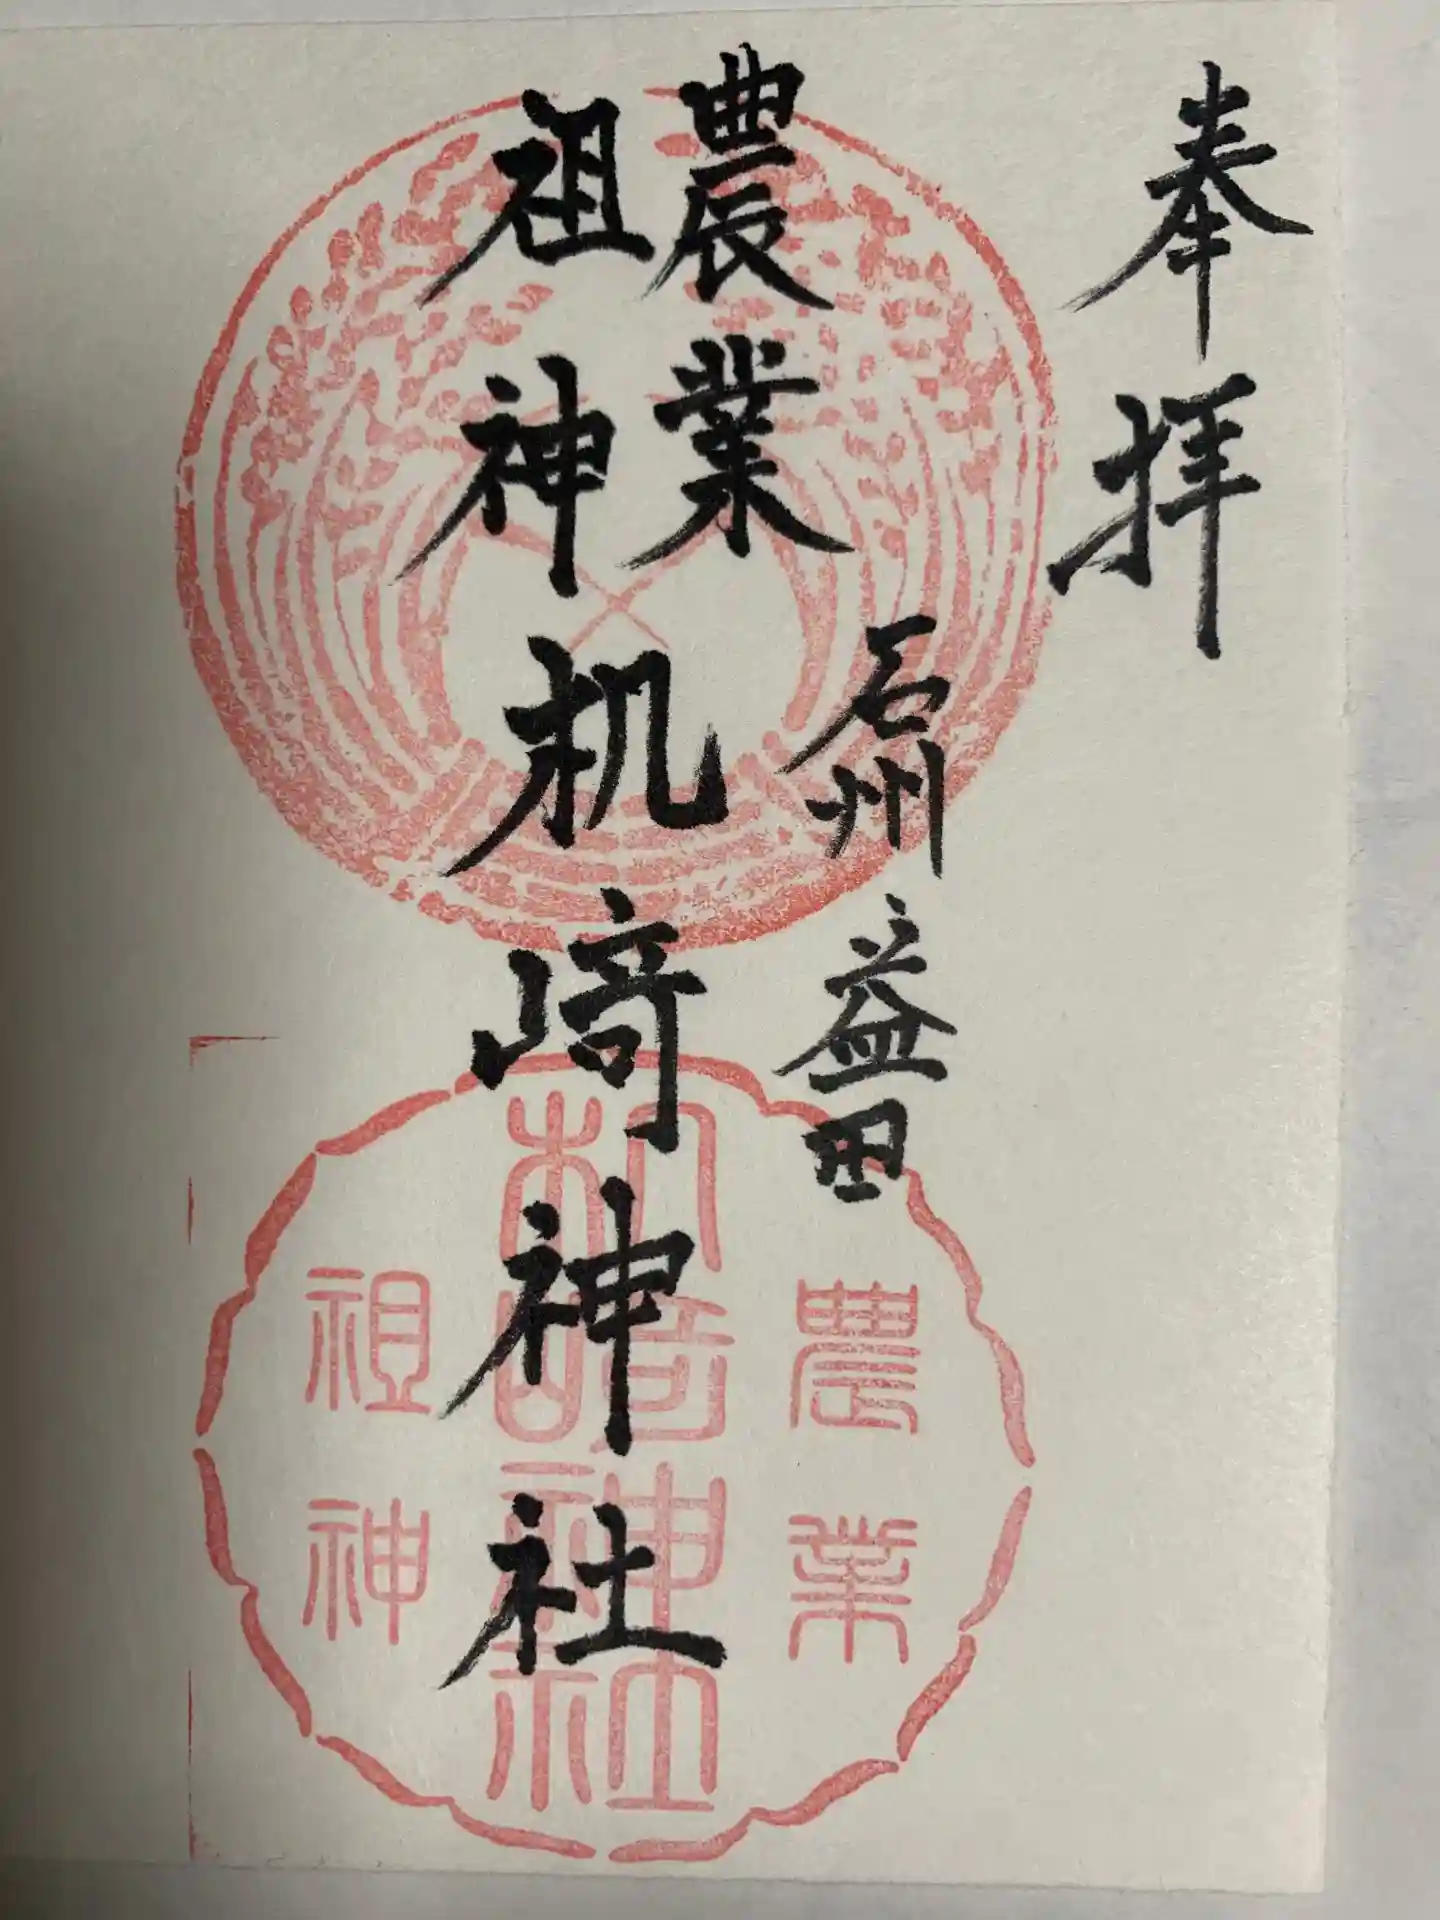 奉拝
石州益田
農業
祖神
机﨑神社
農業
机﨑神社
祖神